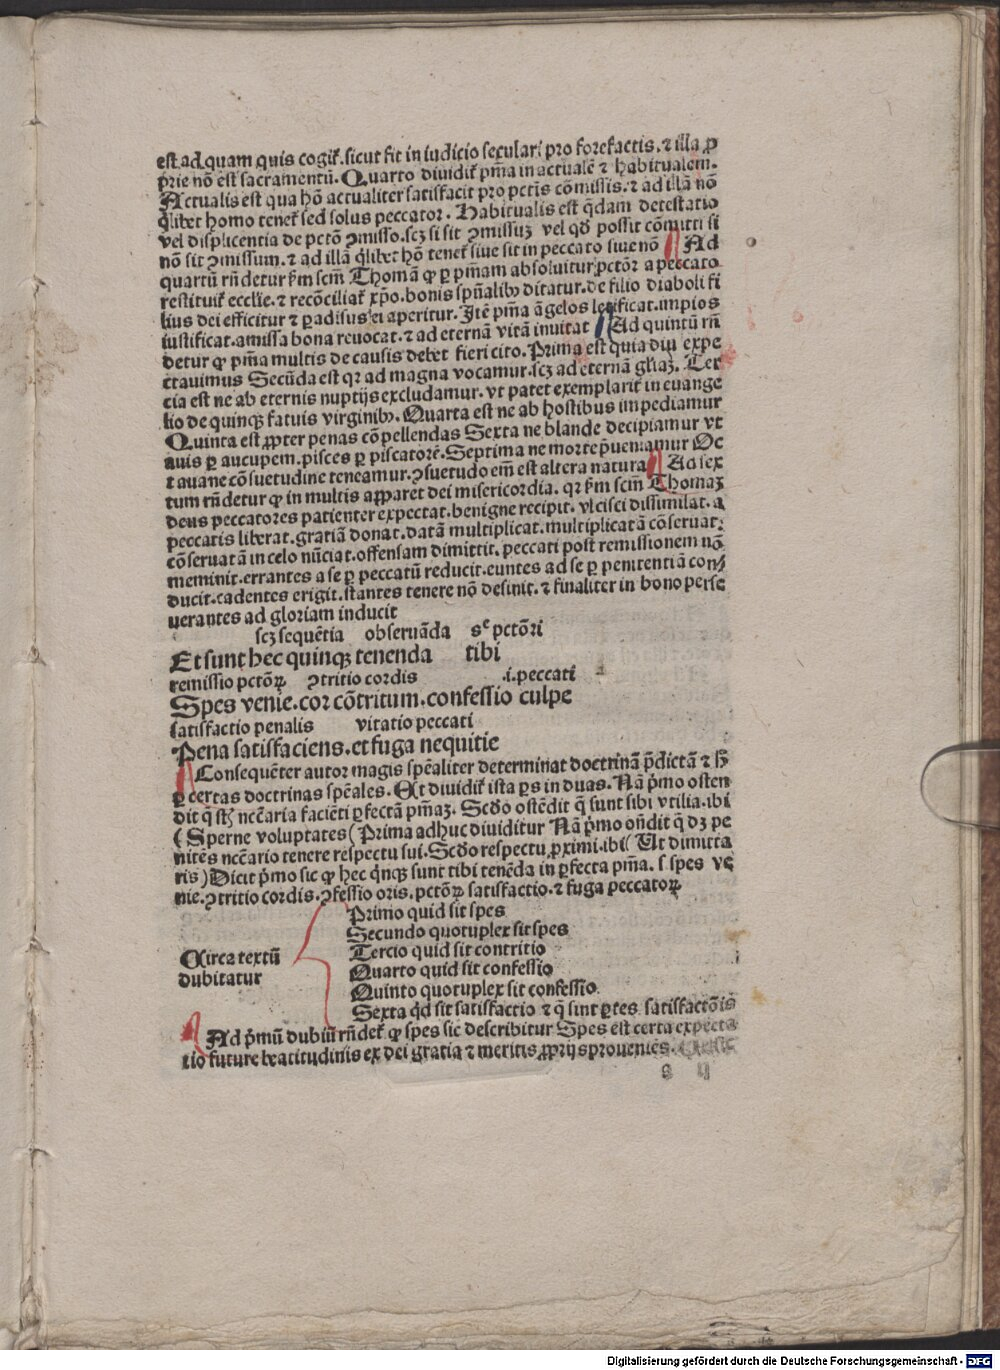 est ad quam quis cogit̃.sicut fit in iudicio seculari pro forefactis.⁊ illa ꝓ
prie nõ est sacramentũ. Quarto diuidit̃ pñia in actualẽ ⁊ habitualem.
Actualis est qua hõ actualiter satisfacit pro pctĩs cõmissis.⁊ ad illã nõ
q̃libet homo tenet̃ sed solus peccator. Habitualis est q̃dam detestatio
vel displicentia de pctõ ꝯmisso.scꝫ si sit ꝯmissuꝫ vel qđ possit cõmitti si
nõ sit ꝯmissum.⁊ ad illã q̃libet hõ tenet̃ siue sit in peccato siue nõ Ad
quartũ rñdetur ẜm scm̃ Thomã ꝙ ꝑ pñiam absoluitur pctõr a peccato
restituit̃ ecclẽie.⁊ recõciliat̃ xp̃o.bonis spũalibꝰ ditatur.de filio diaboli fi
lius dei efficitur ⁊ ꝑadisus ei aperitur. Itẽ pñia ãgelos letificat.impios
iustificat.amissa bona reuocat.⁊ ad eternã vitã inuitat Ad quintũ rñ
detur ꝙ pñia multis de causis debet fieri cito. Prima est quia diu expe
ctauimus Secũda est qꝛ ad magna vocamur.scꝫ ad eternã gl̃iaꝫ. Ter
cia est ne ab eternis nuptijs excludamur.vt patet exemplarit̃ in euange
lio de quinqꝫ fatuis virginibꝰ. Quarta est ne ab hostibus impediamur
Quinta est ꝓpter penas cõpellendas Sexta ne blande decipiamur vt
auis ꝑ aucupem.pisces ꝑ piscatorẽ. Septima ne morte p̃ueniamur Oc
taua ne cõsuetudine teneamur.ꝯsuetudo em̃ est altera natura Ad sex
tum rñdetur ꝙ in multis apparet dei misericordia.qꝛ ẜm scm̃ Thomaꝫ
deus peccatores patienter expectat.benigne recipit.vlcisci dissimilat.a
peccatis liberat.gratiã donat.datã multiplicat.multiplicatã cõseruat:
cõseruatã in celo nũciat.offensam dimittit.peccati post remissionem nõ
meminit.errantes a se ꝑ peccatũ reducit.euntes ad se ꝑ penitentiã con⸗
ducit.cadentes erigit.stantes tenere nõ desinit.⁊ finaliter in bono perse
uerantes ad gloriam inducit
scꝫ sequẽtia obseruãda sᵉ pctõri
Et sunt hec quinqꝫ tenenda tibi
remissio pctõꝝ ꝯtritio cordis .i.peccati
Spes venie.cor cõtritum.confessio culpe
satisfactio penalis vitatio peccati
Pena satisfaciens.et fuga nequitie
Consequẽter autor magis spẽaliter determinat doctrinã p̃dictã ⁊ hᷤ
ꝑ certas doctrinas spẽales. Et diuidit̃ ista ꝑs in duas. Nã p̃mo osten
dit q̃ sũt necc̃aria faciẽti ꝑfectã pñiaꝫ. Scđo ostẽdit q̃ sunt sibi vtilia.ibi
(Sperne voluptates(Prima adhuc diuiditur Nã p̃mo oñdit q̃ dꝫ pe
nitẽs ncc̃ario tenere respectu sui. Scđo respectu ꝓximi.ibi( Ut dimitta
ris) Dicit p̃mo sic ꝙ hec q̃nqꝫ sunt tibi tenẽda in ꝑfecta pñia.s spes ve
nie.ꝯtritio cordis.ꝯfessio oris.pctõꝝ satisfactio.⁊ fuga peccatoꝝ
Primo quid sit spes
Secundo quotuplex sit spes
Tercio quid sit contritio
Circa textũ
dubitatur
Quarto quid sit confessio
Quinto quotuplex sit confessio.
Sexta q̃d sit satisfactio ⁊ q̃ sint ꝑtes satisfactõis
Ad p̃mũ dubiũ rñdet̃ ꝙ spes sic describitur Spes est certa expecta
tio future beatitudinis ex dei gratia ⁊ meritis ꝓprijs proueniẽs.